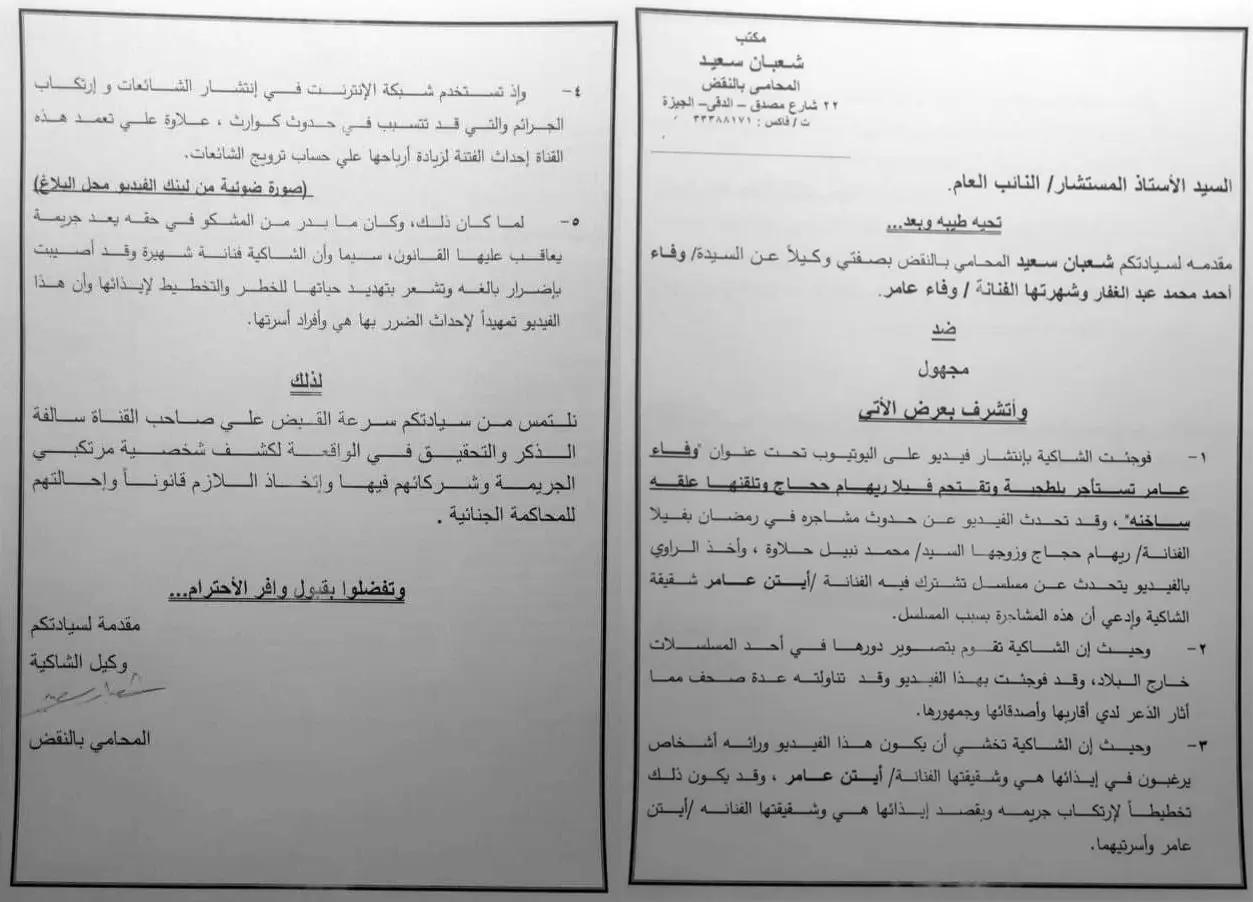 مكتب
شعبان سعيد
المحامى بالنقض
٢٢ شارع مصدق – الدقى– الجيزة
ت / فاكس : ٣٣٣٨٨١٧١
السيد الأستاذ المستشار/ النائب العام.
تحيه طيبه وبعد...
مقدمه لسيادتكم شعبان سعيد المحامي بالنقض بصفتي وكيلاً عن السيدة/ وفاء
أحمد محمد عبد الغفار وشهرتها الفنانة / وفاء عامر.
ضد
مجهول
وأتشرف بعرض الأتي
١- فوجئت الشاكية بإنتشار فيديو على اليوتيوب تحت عنوان "وفاء
عامر تستأجر بلطجية وتقتحم فيلا ريهام حجاج وتلقنها علقه
ساخنه" ، وقد تحدث الفيديو عن حدوث مشاجره في رمضان بفيلا
الفنانة/ ريهام حجاج وزوجها السيد/ محمد نبيل حلاوة ، وأخذ الراوي
بالفيديو يتحدث عن مسلسل تشترك فيه الفنانة /أيتن عامر شقيقة
الشاكية وإدعي أن هذه المشاجرة بسبب المسلسل.
٢- وحيث إن الشاكية تقوم بتصوير دورها في أحد المسلسلات
خارج البلاد، وقد فوجئت بهذا الفيديو وقد تناولته عدة صحف مما
أثار الذعر لدي أقاربها وأصدقائها وجمهورها.
٣- وحيث إن الشاكية تخشي أن يكون هذا الفيديو ورائه أشخاص
يرغبون في إيذائها هي وشقيقتها الفنانة/ أيتن عامر ، وقد يكون ذلك
تخطيطاً لإرتكاب جريمه وبقصد إيذائها هي وشقيقتها الفنانه /أيتن
عامر وأسرتيهما.
٤- وإذ تستخدم شبكة الإنترنت في إنتشار الشائعات و إرتكاب
الجرائم والتي قد تتسبب في حدوث كوارث ، علاوة علي تعمد هذه
القناة إحداث الفتنة لزيادة أرباحها علي حساب ترويج الشائعات.
(صورة ضوئية من لينك الفيديو محل البلاغ)
٥- لما كان ذلك، وكان ما بدر من المشكو في حقه يعد جريمة
يعاقب عليها القانون، سيما وأن الشاكية فنانة شهيرة وقد أصيبت
بإضرار بالغه وتشعر بتهديد حياتها للخطر والتخطيط لإيذائها وأن هذا
الفيديو تمهيداً لإحداث الضرر بها هي وأفراد أسرتها.
لذلك
نلتمس من سيادتكم سرعة القبض علي صاحب القناة سالفة
الذكر والتحقيق في الواقعة لكشف شخصية مرتكبي
الجريمة وشركائهم فيها وإتخاذ اللازم قانوناً وإحالتهم
للمحاكمة الجنائية .
وتفضلوا بقبول وافر الأحترام...
مقدمة لسيادتكم
وكيل الشاكية
شعبان سعيد
المحامي بالنقض